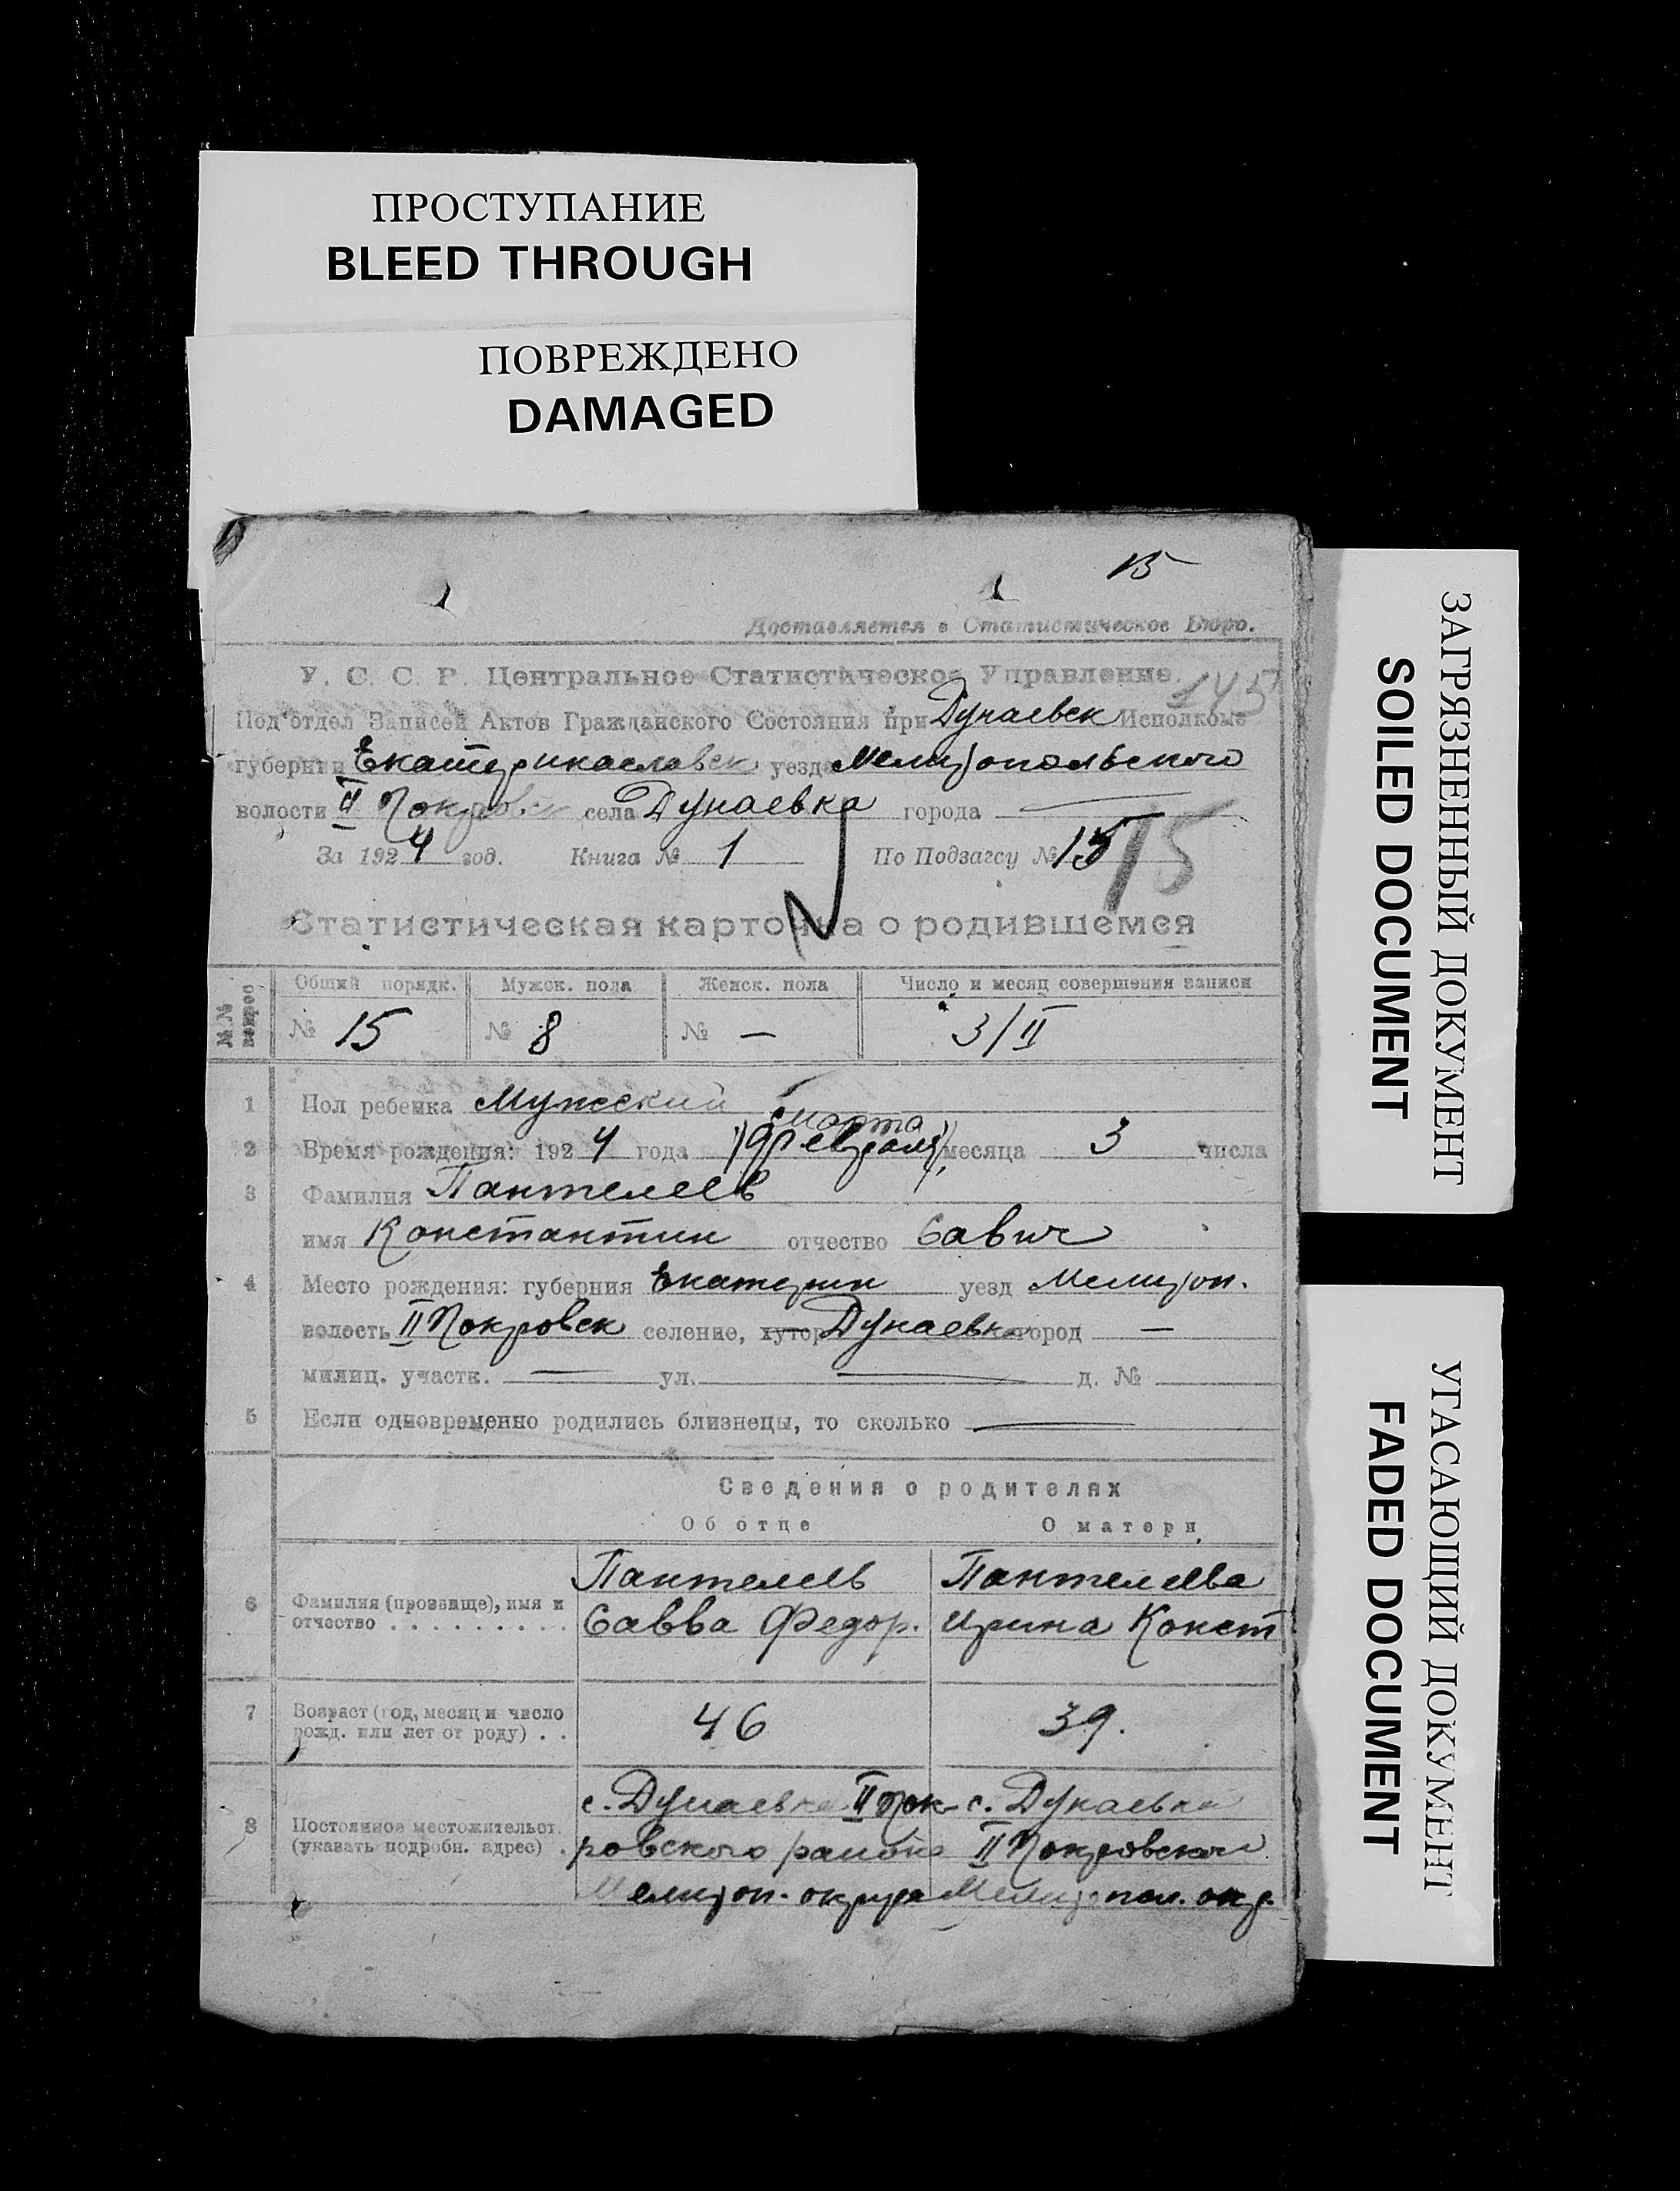 ПРОСТУПАНИЕ
BLEED THROUGH
ПОВРЕЖДЕНО
DAMAGED
15
Доставляется в Статистическое Бюро.
У. С. С. Р. Центральное Статистическое Управление.
145
Под'отдел Записей Актов Гражданского Состояния при Дунаевск Исполкоме
губернии Екатеринославск уезда Мелитопольского
волости II Покровс села Дунаевка города —
За 1924 год. Книга № 1 По Подзагсу № 15 15
Статистическая карточка о родившемся
№№ вопрос Общий порядк. Мужск. пола Женск. пола Число и месяц совершения записи
№ 15 № 8 № — 3/II
1 Пол ребенка Мужеский
марта
2 Время рождения: 1924 года (Февраля) месяца 3 числа
3 Фамилия Пантелеев
имя Константин отчество Савич
4 Место рождения: губерния Екатерин уезд Мелитоп.
волость II Покровск селение, хутор Дунаевка город —
милиц. участк. — ул. — д. №
5 Если одновременно родились близнецы, то сколько —
Сведения о родителях
Об отце О матери
Пантелеев Пантелеева
6 Фамилия (прозвище), имя и отчество . . . . . . . . . Савва Федор. Ирина Конст
7 Возраст (год, месяц и число рожд. или лет от роду) . . 46 39.
с. Дунаевка II Пок- с. Дунаевка
8 Постоянное местожительст. (указать подробн. адрес) . ровского района II Покровского
Мелитоп. округа Мелитопол. окр.
ЗАГРЯЗНЕННЫЙ ДОКУМЕНТ
SOILED DOCUMENT
УГАСАЮЩИЙ ДОКУМЕНТ
FADED DOCUMENT